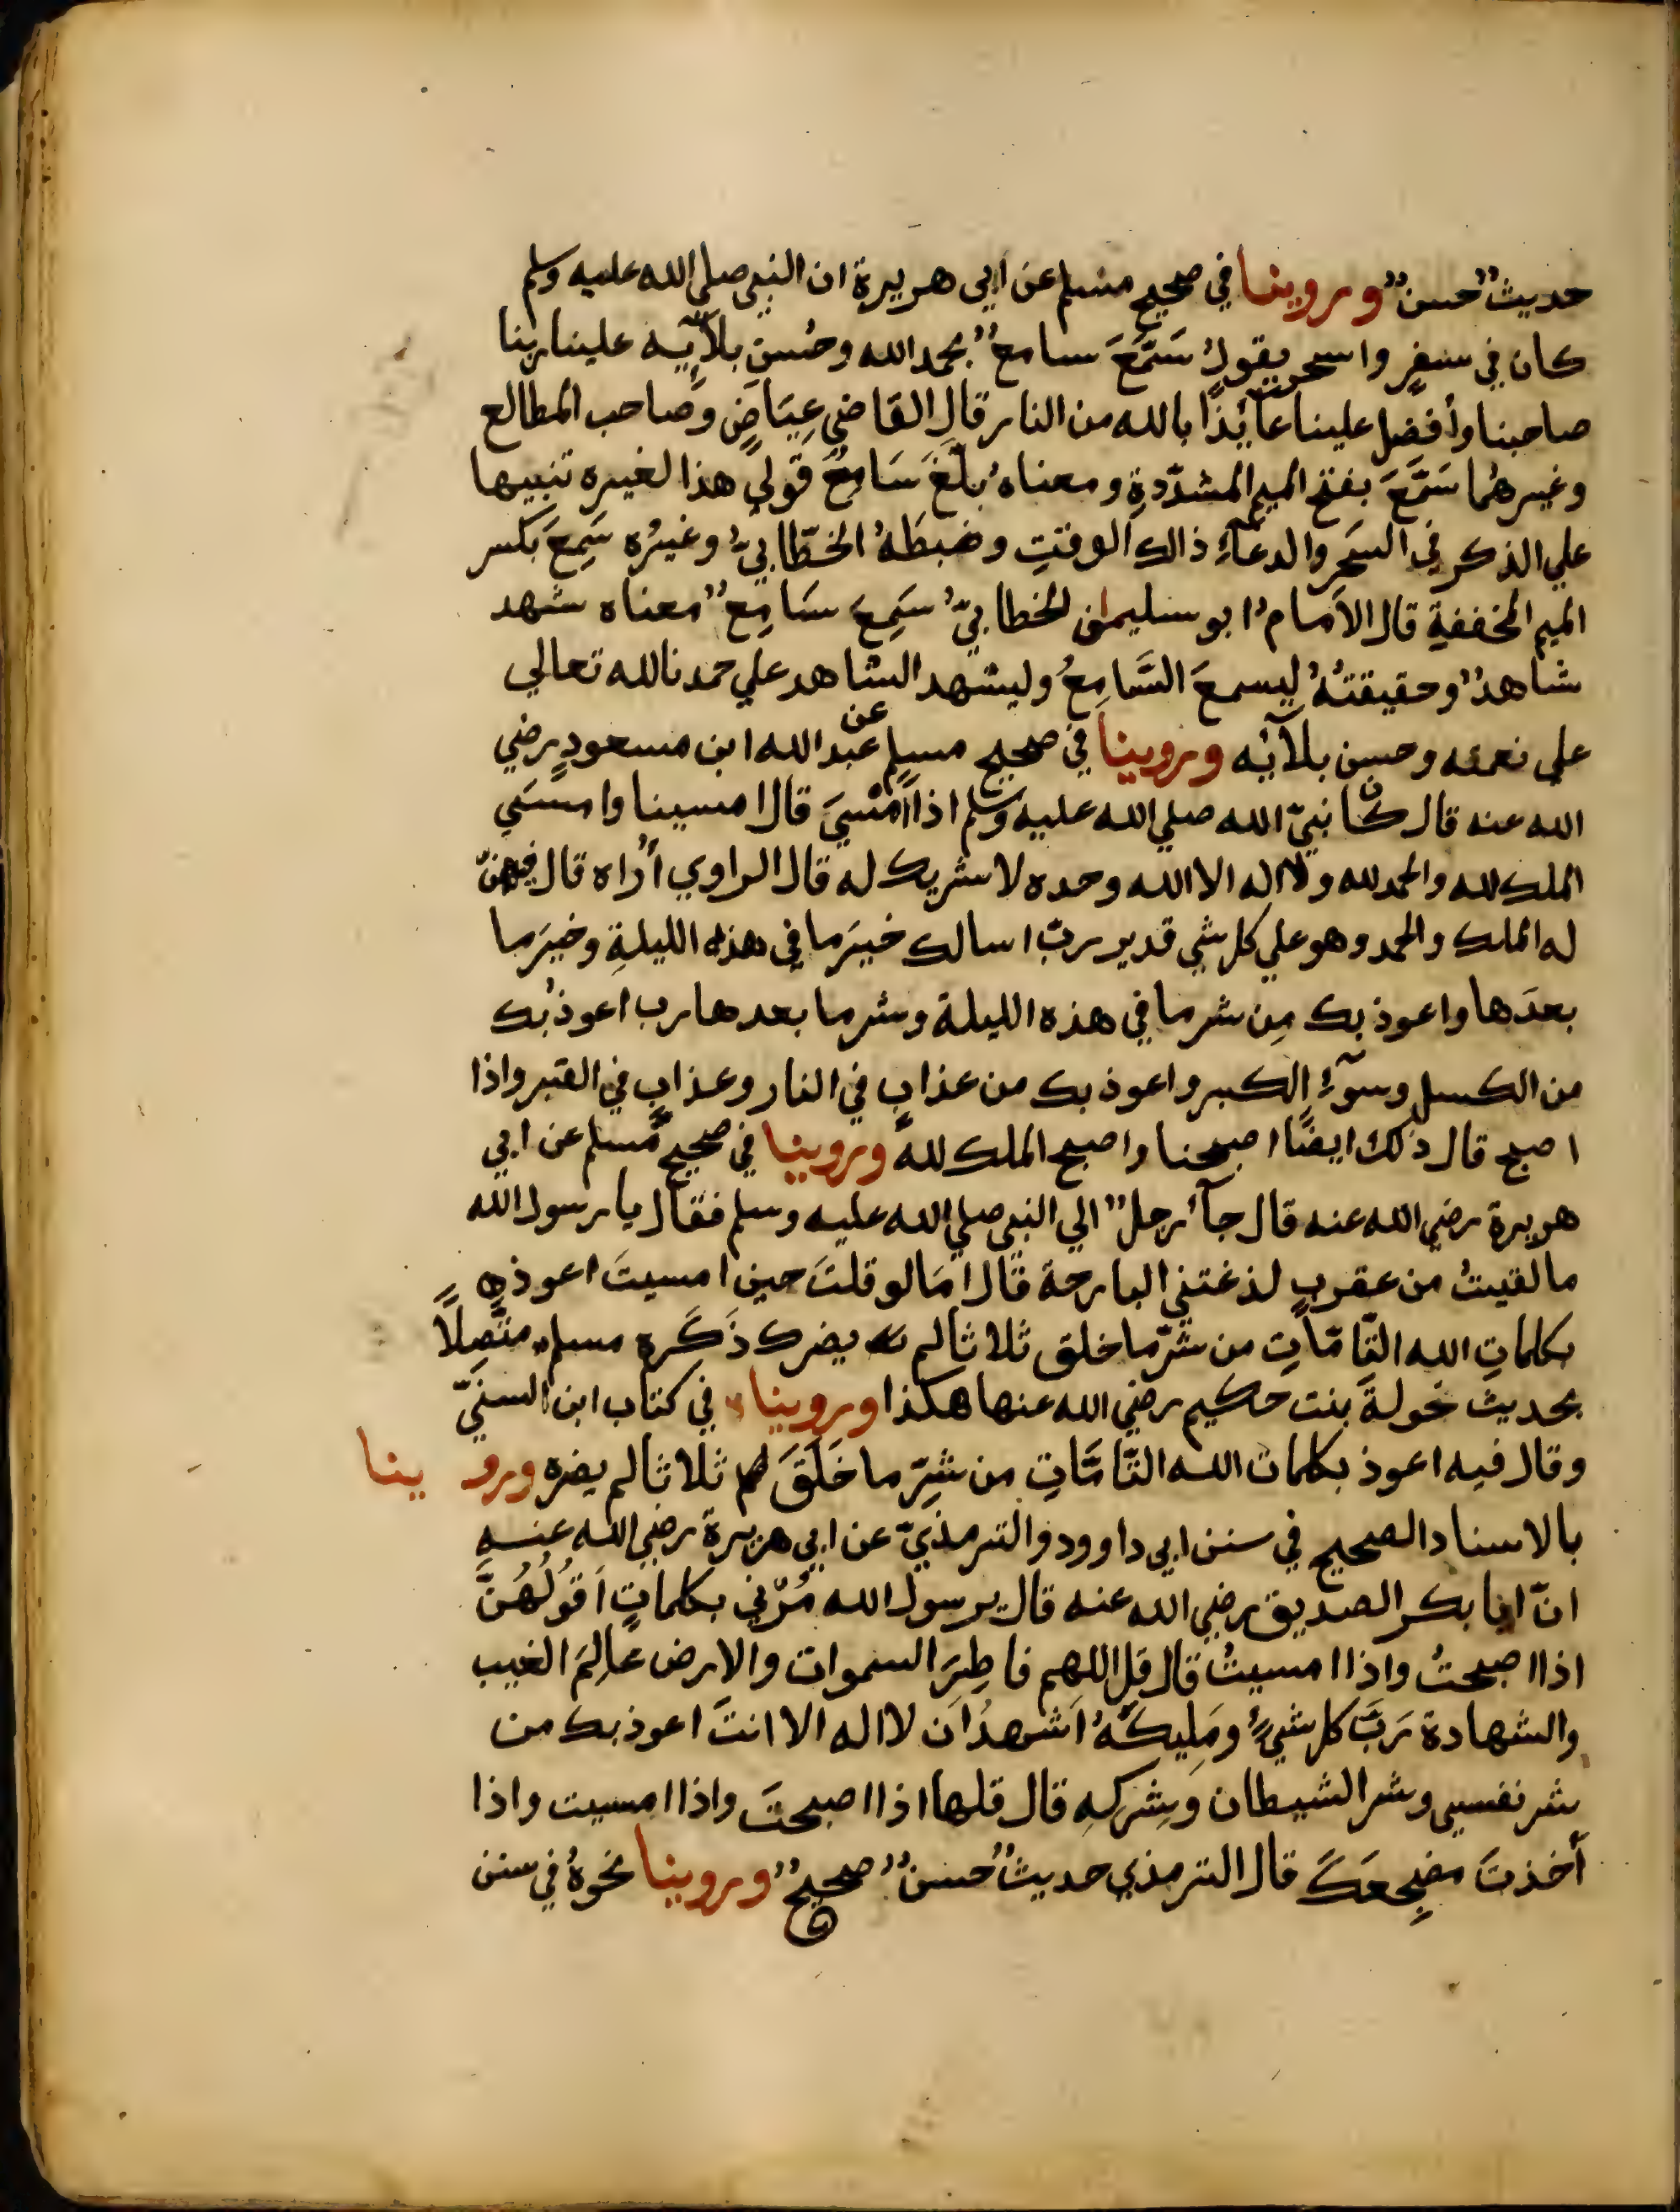 حديثٌ حسنٌ وروينا في صحيح مسلم عن ابي هريرة ان النبي صلي الله عليه وسلم
كان في سفرٍ واسحر يقولُ سَمَّعَ سامعٌ بحمد الله وحُسن بلآيِه علينا ربنا
صاحبنا وأفضل علينا عآئذًا بالله من النار قال القاضي عِيَاضٍ وصاحب المطالع
وغيرهُما سَمَّعَ بفتح الميم المشدّدةِ ومعناهُ بلَّغَ سَامِعٌ قولي هذا لغيره تنبيها
علي الذكر في السَحَر والدعآءِ ذالك الوقتِ وضبطَهُ الخطّابيُّ وغيرُه سَمِعَ بكسر
الميم المخففةِ قال الامامُ ابو سليمن الخطابيُّ سَمِعَ سَامِعٌ معناه شهد
شاهدٌ وحقيقتهُ ليسمعَ السَّامِعُ وليشهد الشاهد علي حمدنا لله تعالي
علي نعمه وحسن بلآئه وروينا في صحيح مسلمٍ عن عبد الله ابن مسعودٍ رضي
الله عنه قال كان نبيّ الله صلي الله عليه وسلم اذا أمْسَيَ قال امسينا وامسَي
الملك لله والحمد لله ولا اله الا الله وحده لا شريك له قال الراوي أُراه قال فيهنّ
له الملك والحمد وهو علي كل شي قدير ربّ اسالك خيرَ ما في هذه الليلةِ وخيرَ ما
بعدَها واعوذ بك مِن شر ما في هذه الليلة وشر ما بعدها رب اعوذُ بك
من الكسل وسوٓءِ الكبر واعوذ بك من عذابٍ في النار وعذابٍ في القبر واذا
اصبح قال ذلك ايضًا اصبحنا واصبح الملك لله وروينا في صحيح مسلم عن ابي
هريرة رضي الله عنه قال جآءَ رجلٌ الي النبي صلي الله عليه وسلم فقال يا رسول الله
ما لقيتُ من عقربٍ لذغتني البارحة قال امَا لو قلتَ حين امسيتَ اعوذ
بكلماتِ الله التّامّاتِ من شرّ ما خلق ثلاثا لم يضرك ذَكَره مسلم متّصِلاً
بحديث خولةَ بنت حكيم رضي الله عنها هكذا وروينا في كتاب ابن السنيّ
وقال فيه اعوذ بكلمات الله التّامَّاتِ من شرِّ ما خَلَقَ ثلاثا لم يضره وروينا
بالاسناد الصحيح في سنن ابي داوود والترمذيّ عن ابي هريرة رضي الله عنه
انّ ابا بكر الصديق رضي الله عنه قال يرسول الله مُرّني بكلماتٍ اَقُولُهُنَّ
اذا اصبحتُ واذا امسيتُ قال قل اللهم فاطِرَ السموات والارض عالِمَ الغيب
والشهادة رَبَّ كل شيءٍ ومَلِيكَهُ اَشهدُ اَن لا اله الا انتَ اعوذ بك من
شر نفسي وشر الشيطان وشِركِهِ قال قلها اذا اصبحتَ واذا امسيت واذا
أخذتَ مضجِعَكَ قال الترمذي حديثٌ حسنٌ صحيحٌ وروينا نحوهُ في سنن